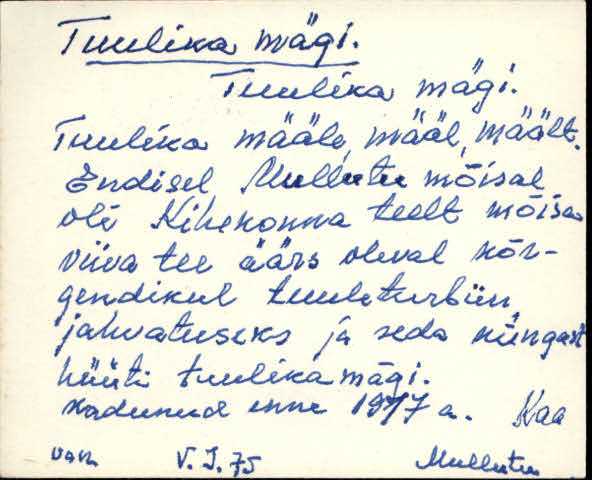 Tuulika mägi.
Tuulika mägi.
Tuulika määle, määl, mäält.
Endisel Mullutu mõisal
oli Kihekonna teelt mõisa
viiva tee äärs oleval kõr-
gendikul tuuleturbiin
jahvatuseks ja seda küngast
hüüti tuulika mägi.
Kadunud enne 1917 a. Kaa
V.J. 75 Mullutu